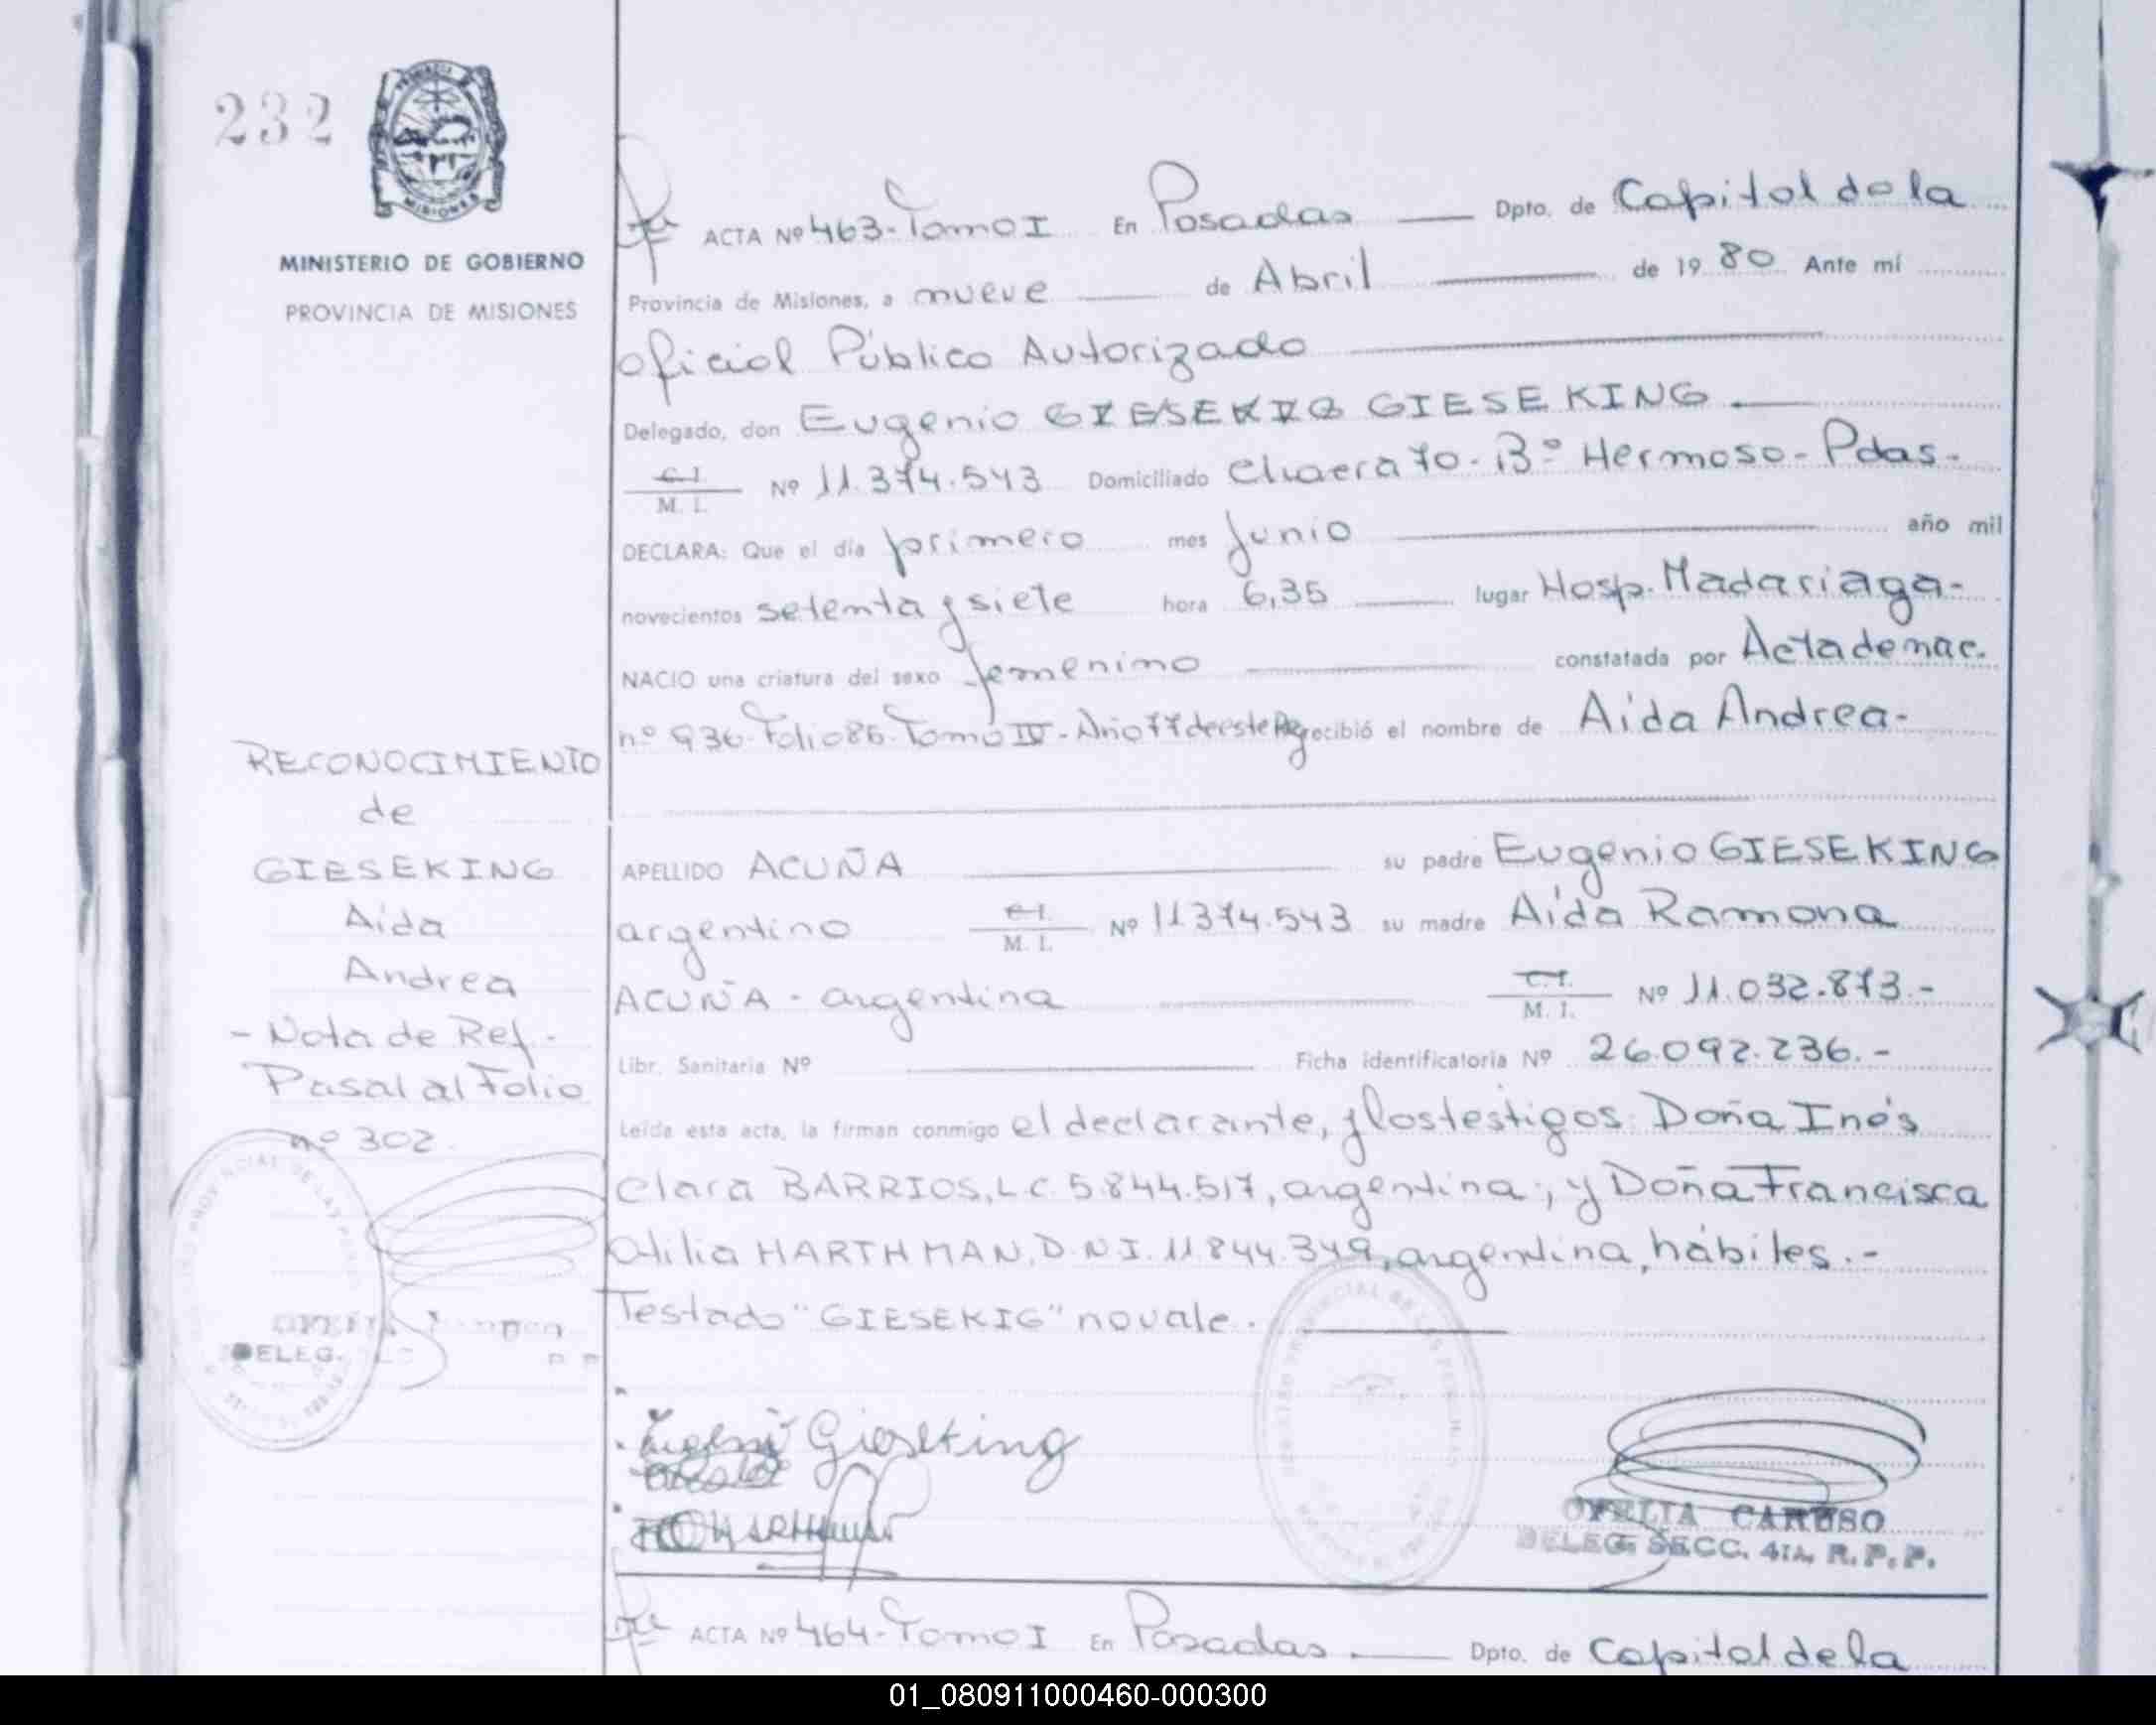 232
MISIONES
MINISTERIO DE GOBIERNO
PROVINCIA DE MISIONES
ACTA Nº 463-Tomo I En Posadas Dpto. de Capital de la
Provincia de Misiones, a nueve de Abril de 1980 Ante mí
oficial Público Autorizado
Delegado, don Eugenio GIESEKIG GIESEKING.
C.I. M. I. Nº 11.374.543 Domiciliado Chacra 70-Bº Hermoso-Pdas-
DECLARA: Que el día primero mes Junio año mil
novecientos setenta y siete hora 6,35 lugar Hosp. Madariaga-
NACIO una criatura del sexo femenino constatada por Acta de nac.
nº 936-Folio 86-Tomo IV-Año 77 de este Reg recibió el nombre de Aida Andrea-
RECONOCIMIENTO
de
GIESEKING
Aida
Andrea
- Nota de Ref.-
Pasa al Folio
nº 302.
APELLIDO ACUÑA su padre Eugenio GIESEKING
argentino C.I. M. I. Nº 11.374.543 su madre Aída Ramona
ACUÑA - argentina C.I. M. I. Nº 11.032.873.-
Libr. Sanitaria Nº Ficha identificatoria Nº 26.092.236.-
Leída esta acta, la firman conmigo el declarante, y los testigos: Doña Inés
Clara BARRIOS, L.C. 5.844.517, argentina; y Doña Francisca
Otilia HARTHMAN, D.N.I. 11.844.349, argentina, hábiles.-
Testado "GIESEKIG" no vale.
DELEG.
Gieseking
OFELIA CARUSO
DELEG. SECC. 4ta. R.P.P.
ACTA Nº 464-Tomo I En Posadas. Dpto. de Capital de la
01_080911000460-000300